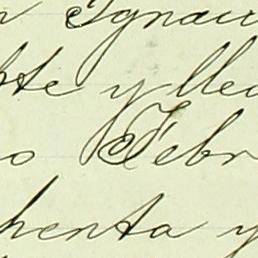 n Ignaci
bte y lleu
o Febr
henta y